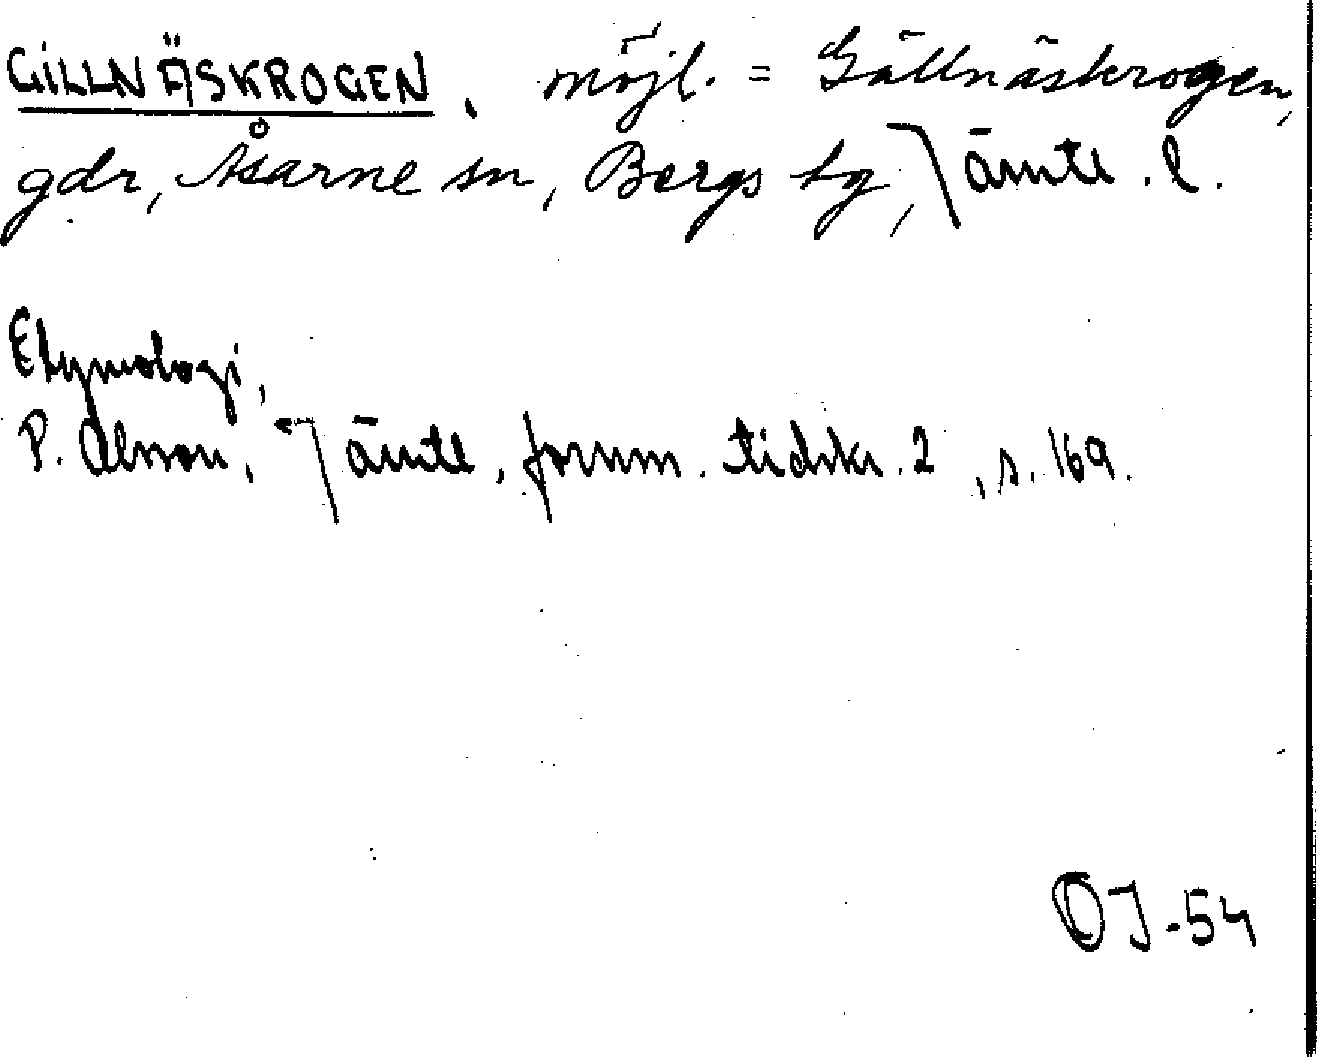 GILLNÄSKROGEN, möjl. = Gällnäskrogen,
gdr, Åsarne sn, Bergs tg, Jämtl. l.
Etymologi,
P. Olsson, Jämtl. fornm. tidskr. 2, s. 169.
OJ-54